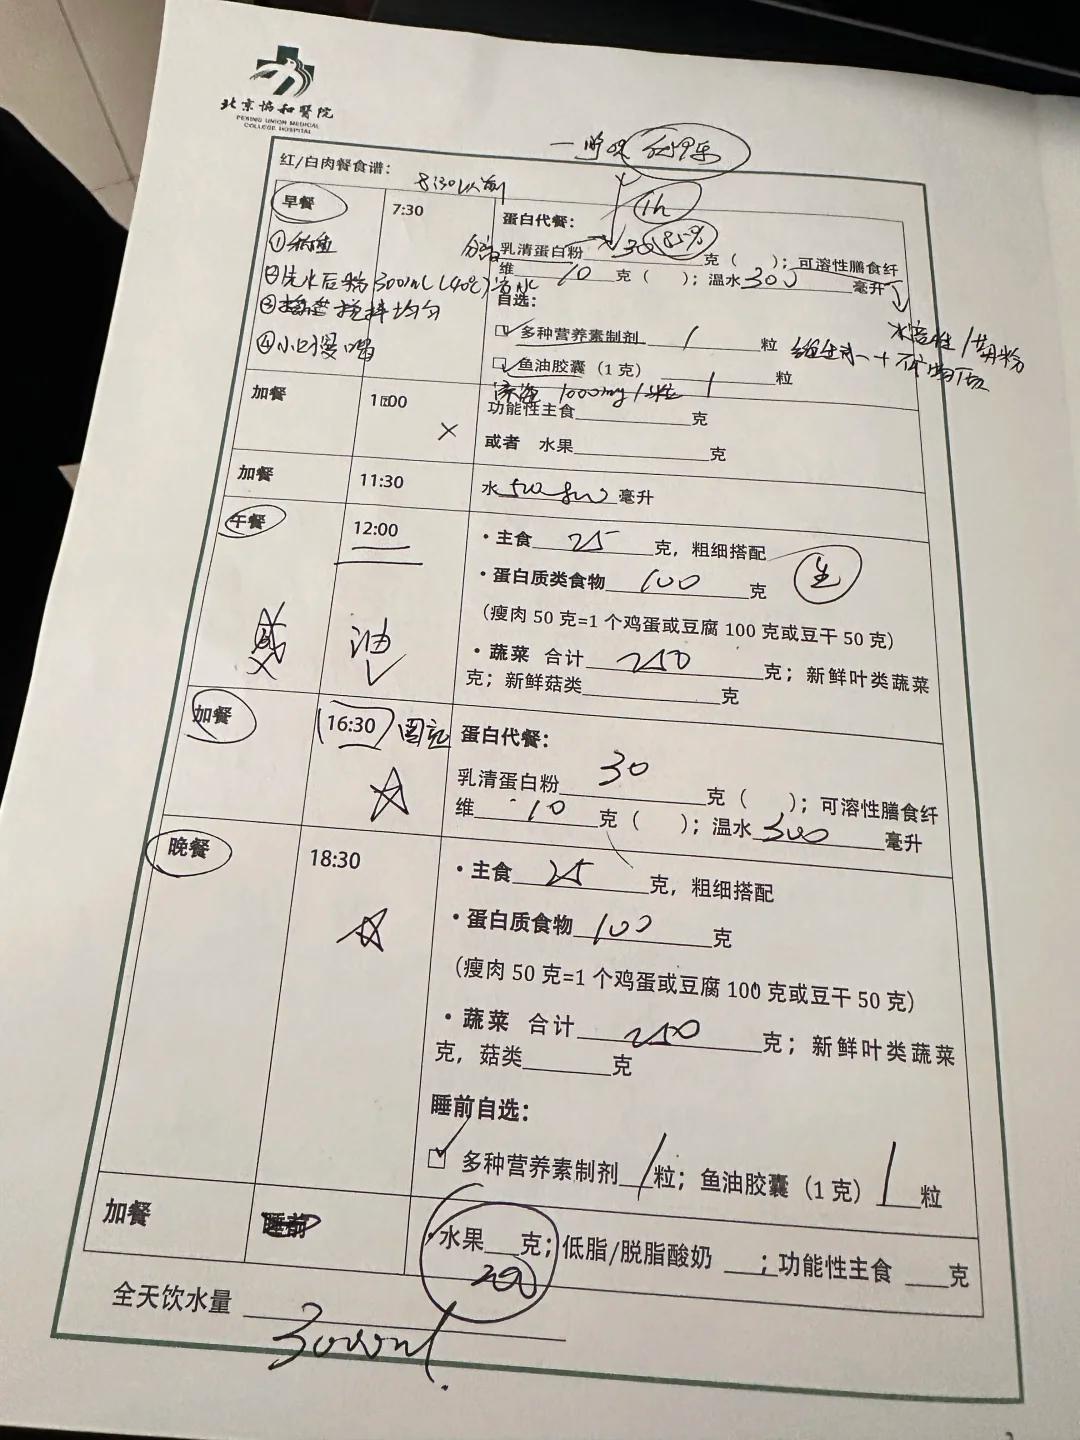 北京协和醫院
PEKING UNION MEDICAL
COLLEGE HOSPITAL
红/白肉餐食谱：
8:30以前
早餐
7:30
1h
蛋白代餐：
乳清蛋白粉 30 克（ ）；可溶性膳食纤
85%
维 10 克（ ）；温水 300 毫升
①
②先水后粉 300ml (40℃)
③ 搅拌均匀
④小口慢喝
自选：
☑ 多种营养素制剂 1 粒
☑ 鱼油胶囊（1 克） 1 粒
1000mg/粒
加餐
×
功能性主食 克
或者 水果 克
加餐
11:30
水 500-800 毫升
午餐
12:00
·主食 25 克，粗细搭配
生
·蛋白质类食物 100 克
（瘦肉 50 克=1 个鸡蛋或豆腐 100 克或豆干 50 克）
油
·蔬菜 合计 250 克；新鲜叶类蔬菜
克；新鲜菇类 克
加餐
16:30
蛋白代餐：
乳清蛋白粉 30 克（ ）；可溶性膳食纤
维 10 克（ ）；温水 300 毫升
晚餐
18:30
·主食 25 克，粗细搭配
·蛋白质食物 100 克
（瘦肉 50 克=1 个鸡蛋或豆腐 100 克或豆干 50 克）
·蔬菜 合计 250 克；新鲜叶类蔬菜
克，菇类 克
睡前自选：
☑ 多种营养素制剂 1 粒；鱼油胶囊（1 克） 1 粒
加餐
睡前
·水果 200 克；低脂/脱脂酸奶 ；功能性主食 克
全天饮水量 3000ml